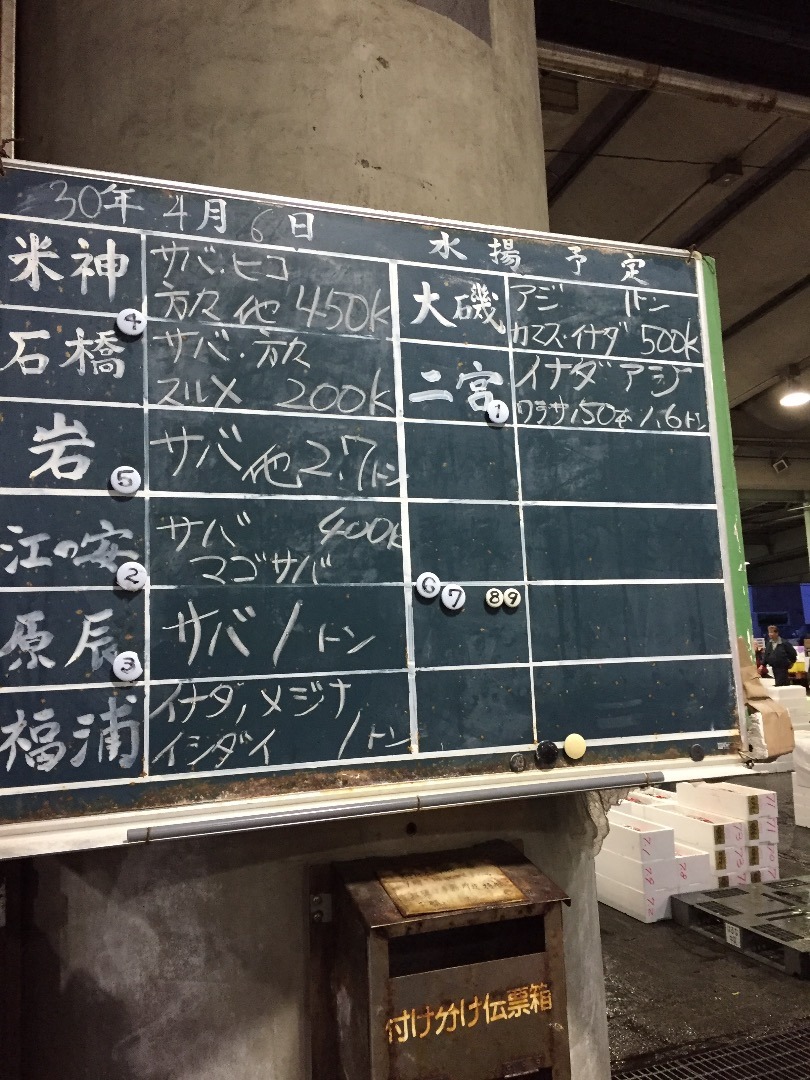 30年 4月 6日
水揚予定
米神
サバ・ヒコ
方々 他 450k
④
石橋
サバ・方々
スルメ 200k
岩
サバ 他 2.7トン
⑤
江の安
サバ 400k
マゴサバ
②
原辰
サバ 1トン
③
福浦
イナダ,メジナ
イシダイ 1トン
大磯
アジ 1トン
カマス・イナダ 500k
二宮
イナダ アジ
ワラサ150本 1.6トン
①
⑥ ⑦ ⑧ ⑨
付け分け伝票箱